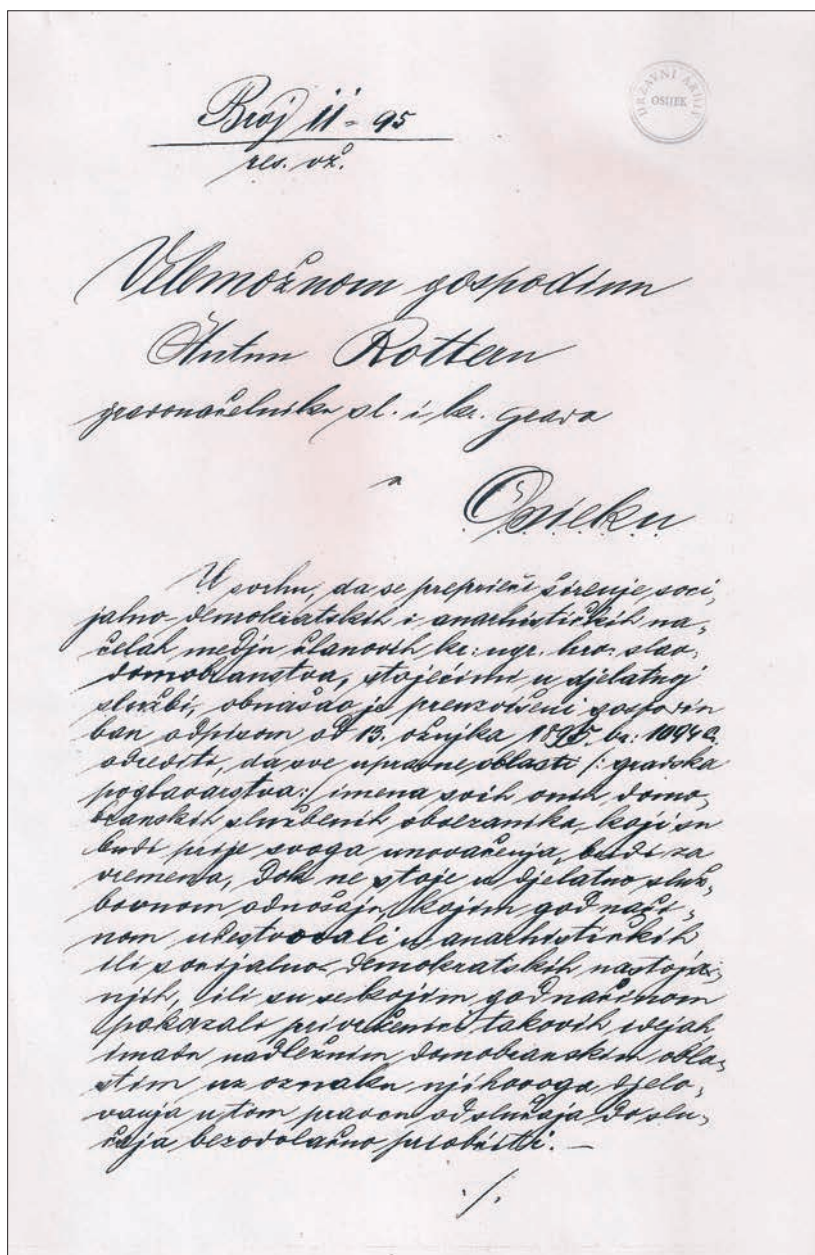 DRŽAVNI ARHIV
OSIJEK
Broj 11-95
res. vž.
Velemožnom gospodinu
Antun Rotteru
gradonačelniku sl. i kr. grada
u
Osieku
U svrhu, da se prepriči širenje soci„
jalno demokratskih i anarhističkih na„
čelah medju članovih kr: ugr. hrv. slav.
domobranstva, stojećimi u djelatnoj
službi, obnašao je preuzvišeni gospodin
ban odpisom od 13. ožujka 1895. br: 1094
odrediti, da sve upravne oblasti /: gradska
poglavarstva:/ imena svih onih domo„
branskih službenih obvezanika, koji su
budi prije svoga unovačenja, budi za
vremena, dok ne stoje u djelatno služ„
bovnom odnošaju, kojim god nači„
nom učestvovali u anarhističkih
ili socijalno-demokratskih nastoja„
njih, ili su se kojim god načinom
pokazali privrženici takovih idejah
imadu nadležnim domobranskim obla„
stim uz oznaku njihovoga djelo„
vanja u tom pravcu od slučaja do slu„
čaja bezodvlačno priobćiti. —
./.